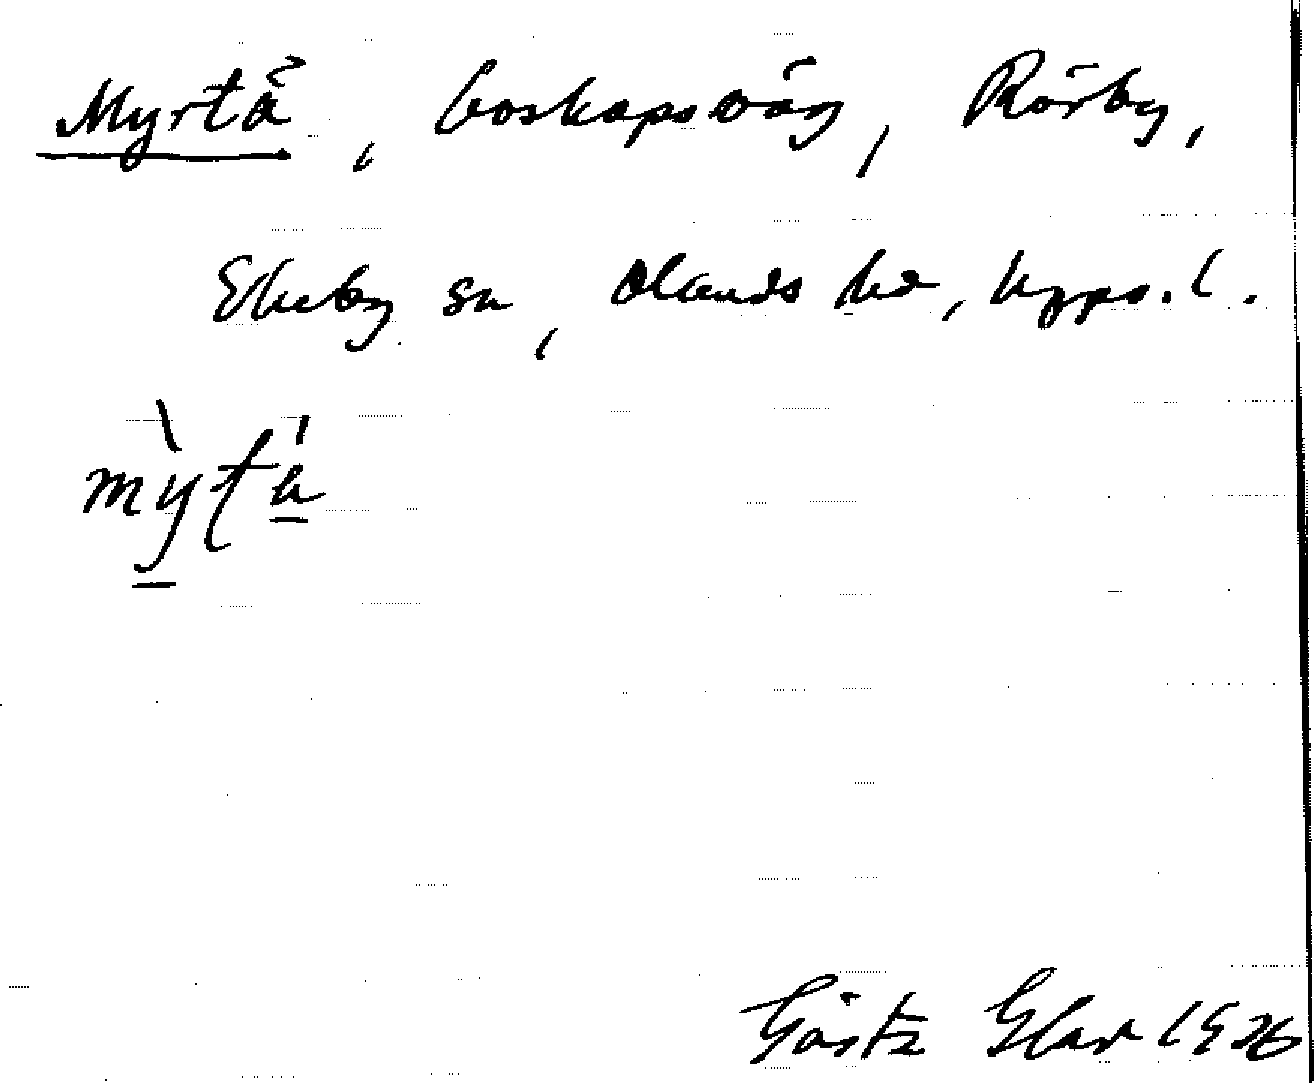 Myrtå, boskapsväg, Rörby,
Ekeby sn, Olands hd, Upps. l.
mỳta̍
Gösta Élar 1926